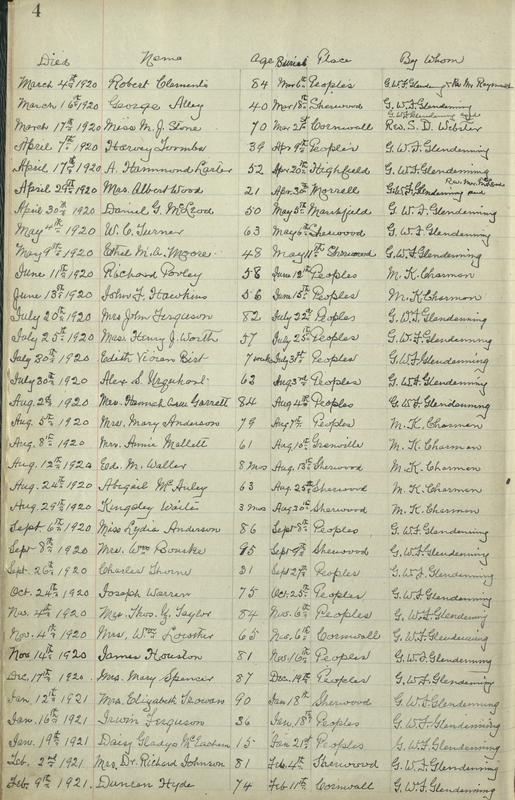 4
Died Name Age Burial Place By Whom
March 4th 1920 Robert Clements 84 Mar 6th Peoples G.W.F. Glendenning & Rev Mr Raymond
March 16th 1920 George Alley 40 Mar 18th Sherwood G.W.F. Glendenning
G.W.F. Glendenning
March 17th 1920 Miss M. J. Stone 70 Mar 21st Cornwall Rev. S. D. Webster
April 7th 1920 Harvey Toombs 39 Apr 9th Peoples G.W.F. Glendenning
April 17th 1920 A. Hammond Carter 52 Apr 20th Highfield G.W.F. Glendenning
April 29th 1920 Mrs. Albert Wood 21 Apr Morrell G.W.F. Glendenning and
April 30th 1920 Daniel G. McLeod 50 May 5th Marshfield G.W.F. Glendenning
May 4th 1920 W. C. Turner 63 May 6th Sherwood G.W.F. Glendenning
May 9th 1920 Ethel M. A. Moore 48 May 11th Sherwood G.W.F. Glendenning
June 11th 1920 Richard Povley 58 June 12th Peoples M. K. Charmon
June 13th 1920 John F. Hawkins 56 June 15th Peoples M. K. Charmon
July 20th 1920 Mrs John Ferguson 82 July 22nd Peoples G.W.F. Glendenning
July 25th 1920 Mrs. Henry J. Worth 57 July 25th Peoples G.W.F. Glendenning
July 30th 1920 Edith Vivian Bist 7 weeks July 31st Peoples G.W.F. Glendenning
July 30th 1920 Alex S. Urquhart 62 Aug 3rd Peoples G.W.F. Glendenning
Aug. 2nd 1920 Mrs. Hannah Garrett 84 Aug 4th Peoples G.W.F. Glendenning
Aug. 5th 1920 Mrs. Mary Anderson 79 Aug 7th Peoples M. K. Charmon
Aug. 8th 1920 Mrs. Annie Mallett 61 Aug 10th Granville M. K. Charmon
Aug. 12th 1920 Ed. M. Waller 8 mos Aug. 13th Sherwood M. K. Charmon
Aug. 24th 1920 Abigail McAuley 63 Aug. 25th Sherwood M. K. Charmon
Aug. 29th 1920 Kingsley Waite 3 mos Aug 30th Sherwood M. K. Charmon
Sept 6th 1920 Miss Lydia Anderson 86 Sept 8th Peoples G.W.F. Glendenning
Sept 8th 1920 Mrs. Wm Bourke 95 Sept 9th Sherwood G.W.F. Glendenning
Sept. 26th 1920 Charles Thorne 31 Sept 27th Peoples G.W.F. Glendenning
Oct. 24th 1920 Joseph Warren 75 Oct. 25th Peoples G.W.F. Glendenning
Nov. 4th 1920 Mrs. Thos. G. Taylor 84 Nov. 6th Peoples G.W.F. Glendenning
Nov. 4th 1920 Mrs. Wm Lowther 65 Nov. 6th Cornwall G.W.F. Glendenning
Nov. 14th 1920 James Houston 81 Nov. 16th Peoples G.W.F. Glendenning
Dec. 17th 1920 Mrs. Mary Spencer 87 Dec. 19th Peoples G.W.F. Glendenning
Jan. 12th 1921 Mrs. Elizabeth 90 Jan 18th Sherwood G.W.F. Glendenning
Jan. 16th 1921 Irwin Ferguson 36 Jan. 18th Peoples G.W.F. Glendenning
Jan. 19th 1921 Daisy Gladys McEachern 15 Jan 21st Peoples G.W.F. Glendenning
Feb. 2nd 1921 Mrs. Dr. Richard Johnson 81 Feb. 4th Sherwood G.W.F. Glendenning
Feb. 9th 1921 Duncan Hyde 74 Feb 11th Cornwall G.W.F. Glendenning